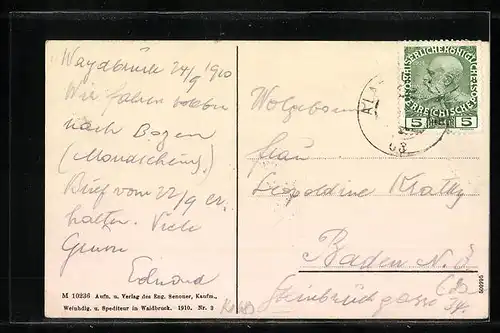 Waydbruck 24/9 1910
Wir fahren soeben
nach Bozen
(Mondschein).
Brief vom 22/9 er-
halten. Viele
Grüsse
Edmund
M 10236 Aufn. u. Verlag des Eug. Senoner, Kaufm.,
Weinhdlg. u. Spediteur in Waidbruck. 1910. Nr. 3
Wolgeborn
Frau
Leopoldine Kratky
Baden N. Ö.
Steinbruckgasse 34.
KAISERLICHE KÖNIGLICHE ÖSTERREICHISCHE
5 5
600995